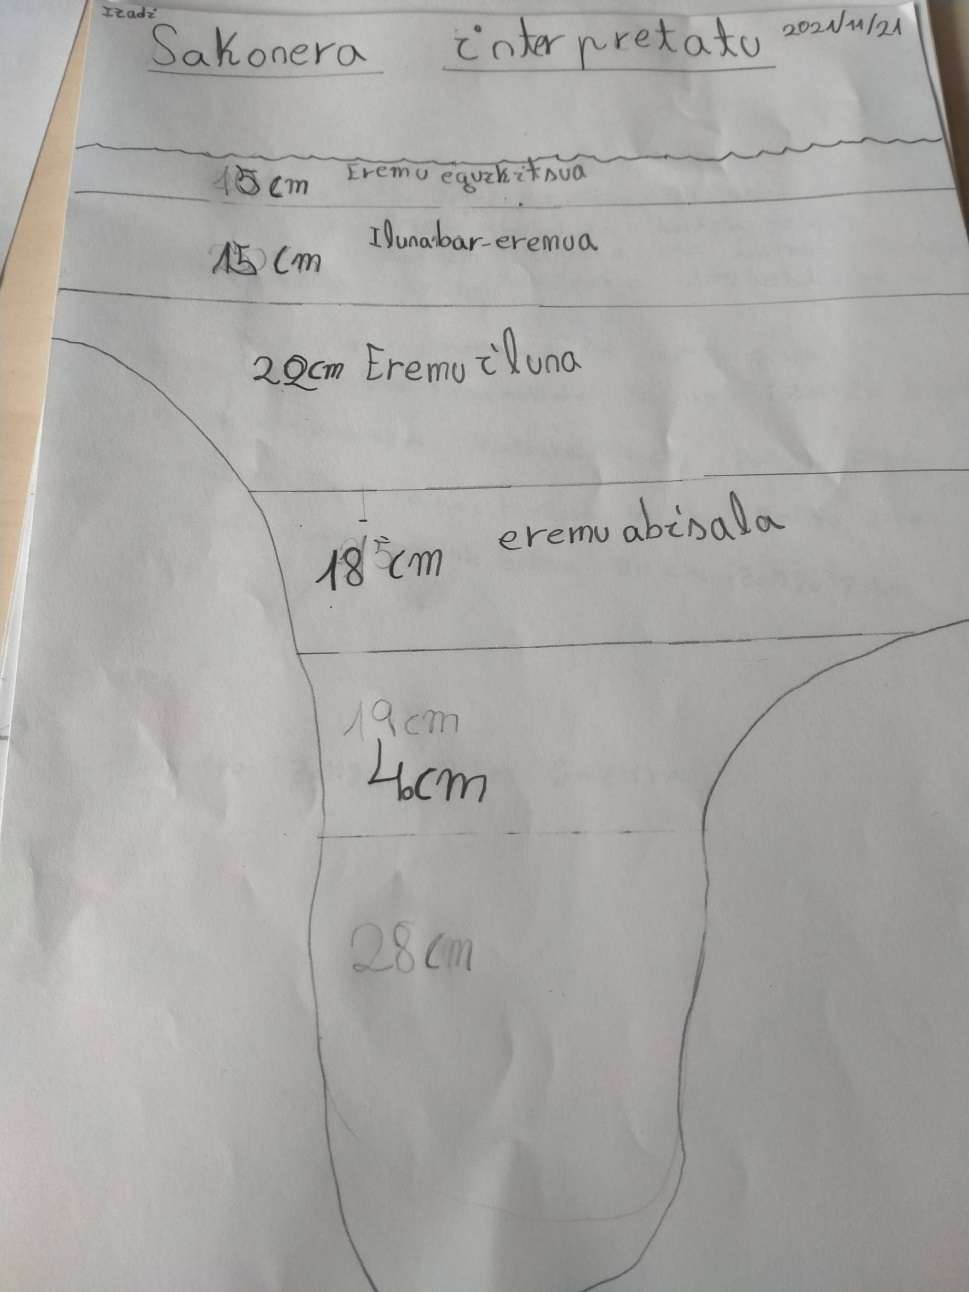 Izadi
Sakonera interpretatu 2021/11/21
cm Eremu eguzkitsua
15 cm Ilunabar-eremua
20cm Eremu iluna
18 cm eremu abisala
19cm
4cm
28cm